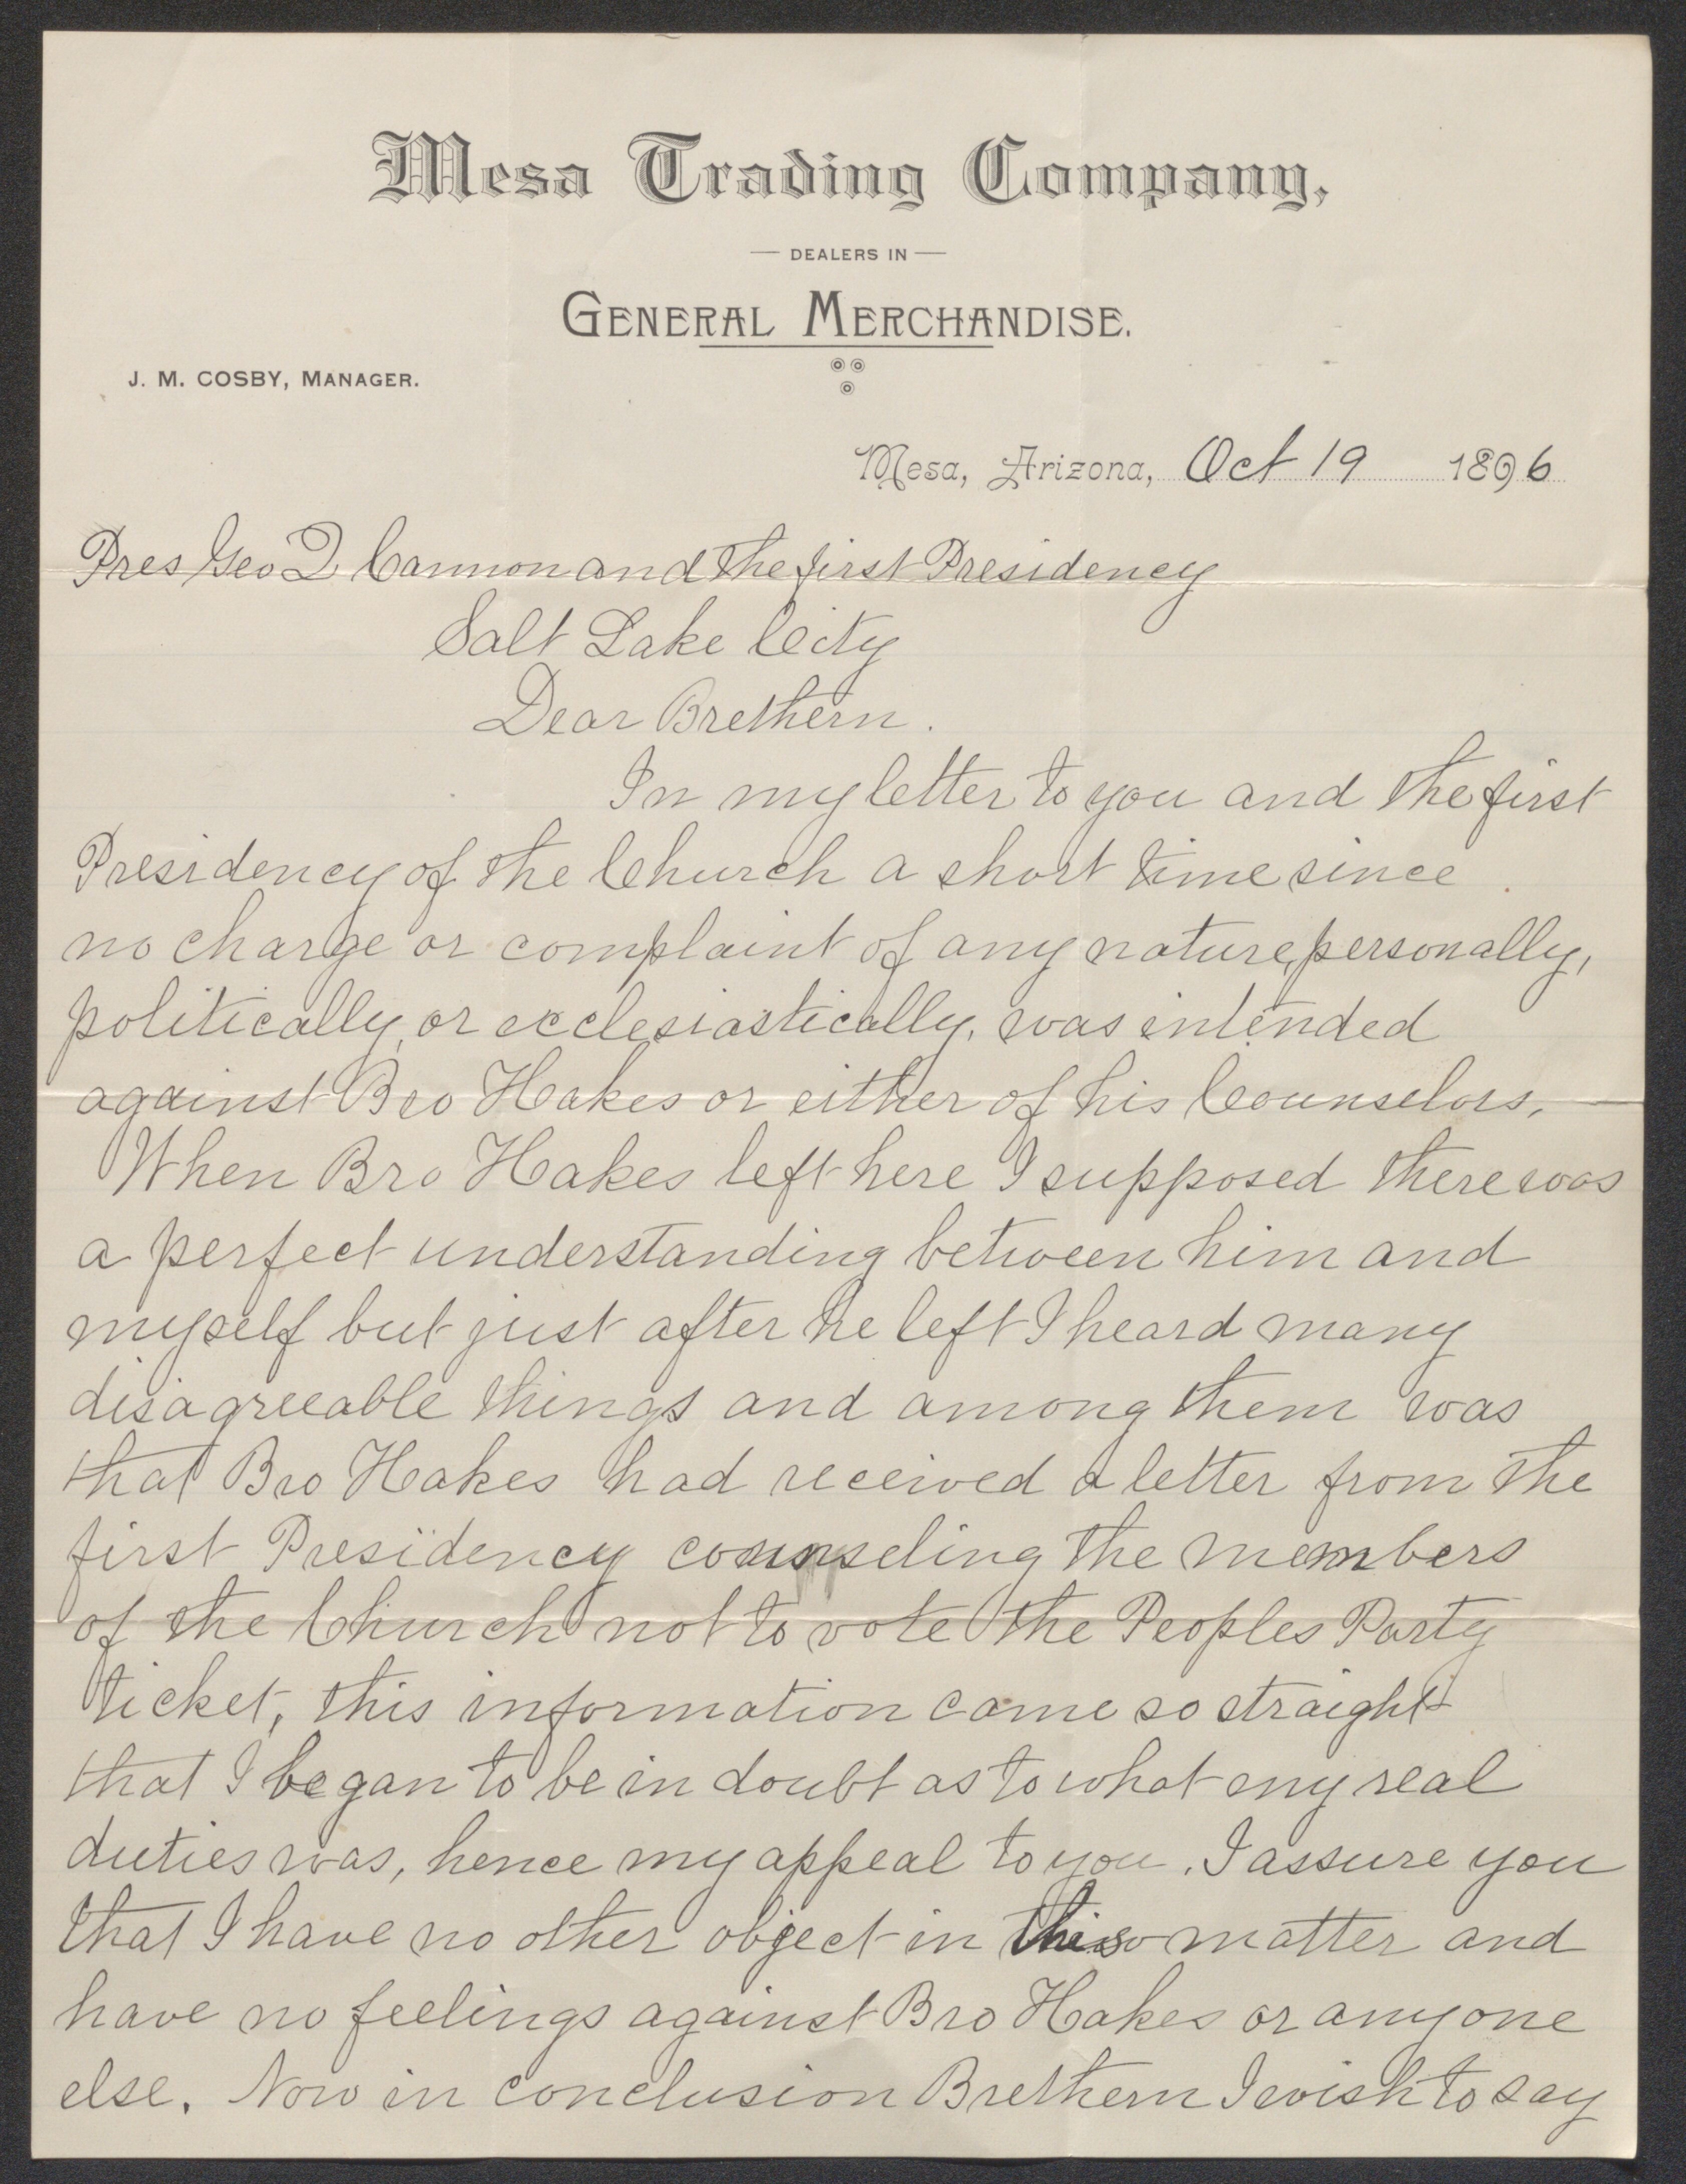 Mesa Trading Company,
— DEALERS IN —
GENERAL MERCHANDISE.
J. M. COSBY, MANAGER.
Mesa, Arizona, Oct 19 1896
Pres Geo Q Cannon and the first Presidency
Salt Lake City
Dear Brethern.
In my letter to you and the first
Presidency of the Church a short time since
no charge or complaint of any nature, personally,
politically, or ecclesiastically, was intended
against Bro Hakes or either of his Counselors,
When Bro Hakes left here I supposed there was
a perfect understanding between him and
myself but just after he left I heard many
disagreeable things and among them was
that Bro Hakes had received a letter from the
first Presidency counseling the members
of the Church not to vote the Peoples Party
ticket, this information came so straight
that I began to be in doubt as to what my real
duties was, hence my appeal to you. I assure you
that I have no other object in this matter and
have no feelings against Bro Hakes or anyone
else. Now in conclusion Brethern I wish to say